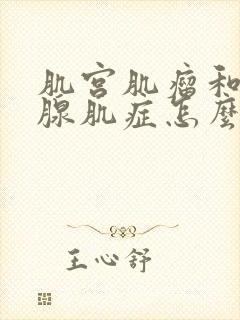 肌宫肌瘤和
腺肌症怎麼
王心舒